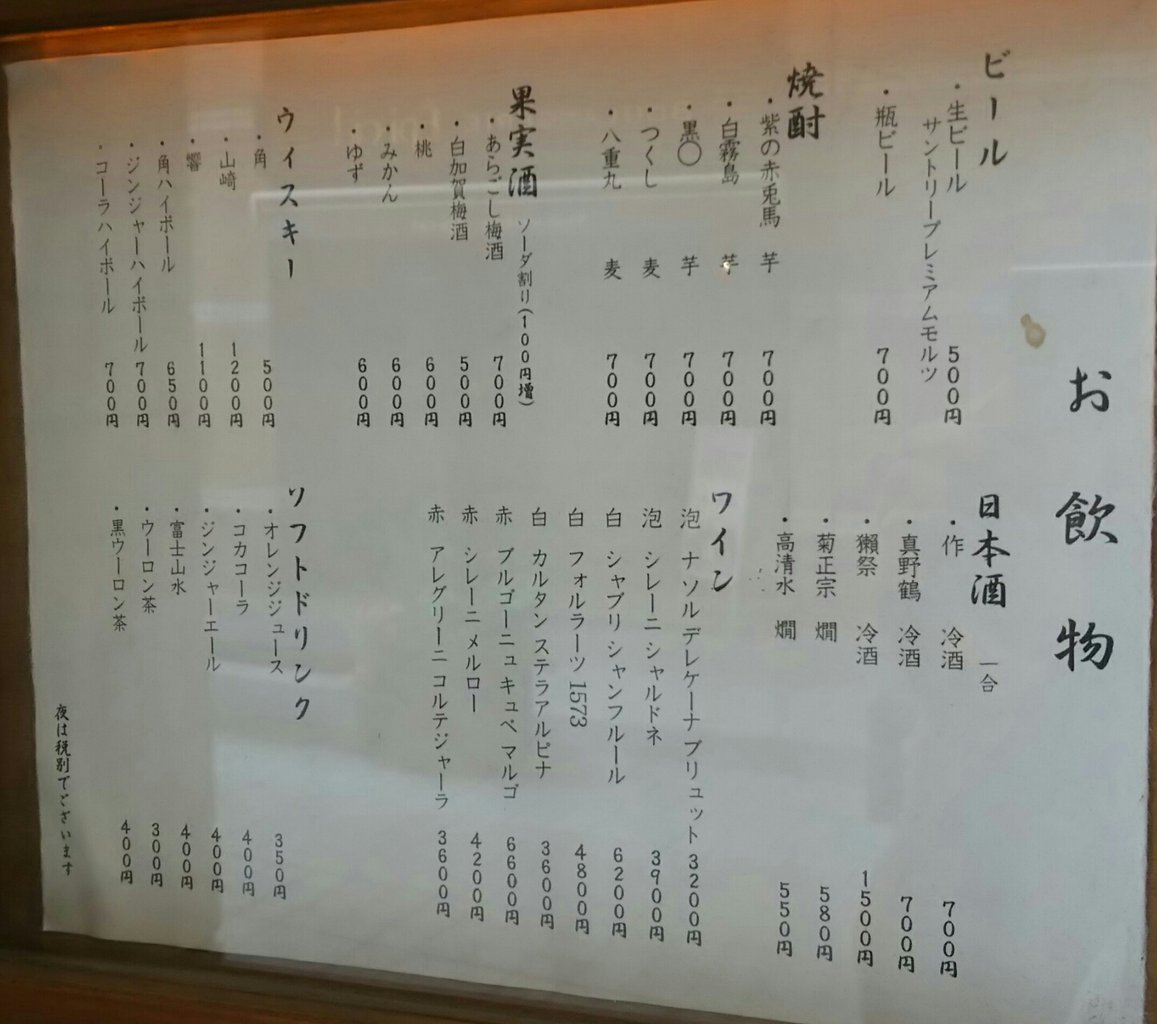 お飲物
ビール
・生ビール 500円
サントリープレミアムモルツ
・瓶ビール 700円
焼酎
・紫の赤兎馬 芋 700円
・白霧島 芋 700円
・黒〇 芋 700円
・つくし 麦 700円
・八重丸 麦 700円
果実酒 ソーダ割り(100円増)
・あらごし梅酒 700円
・白加賀梅酒 500円
・桃 600円
・みかん 600円
・ゆず 600円
ウイスキー
・角 500円
・山崎 1200円
・響 1100円
・角ハイボール 650円
・ジンジャーハイボール 700円
・コーラハイボール 700円
日本酒 一合
・作 冷酒 700円
・真野鶴 冷酒 700円
・獺祭 冷酒 1500円
・菊正宗 燗 580円
・高清水 燗 550円
ワイン
泡 ナソルデレケーナブリュット 3200円
泡 シレーニ シャルドネ 3900円
白 シャブリ シャンフルール 6200円
白 フォルラーツ 1573 4800円
白 カルタン ステラアルピナ 3600円
赤 ブルゴーニュ キュベ マルゴ 6600円
赤 シレーニ メルロー 4200円
赤 アレグリーニ コルテジャーラ 3600円
ソフトドリンク
・オレンジジュース 350円
・コカコーラ 400円
・ジンジャーエール 400円
・富士山水 400円
・ウーロン茶 300円
・黒ウーロン茶 400円
夜は税別でございます